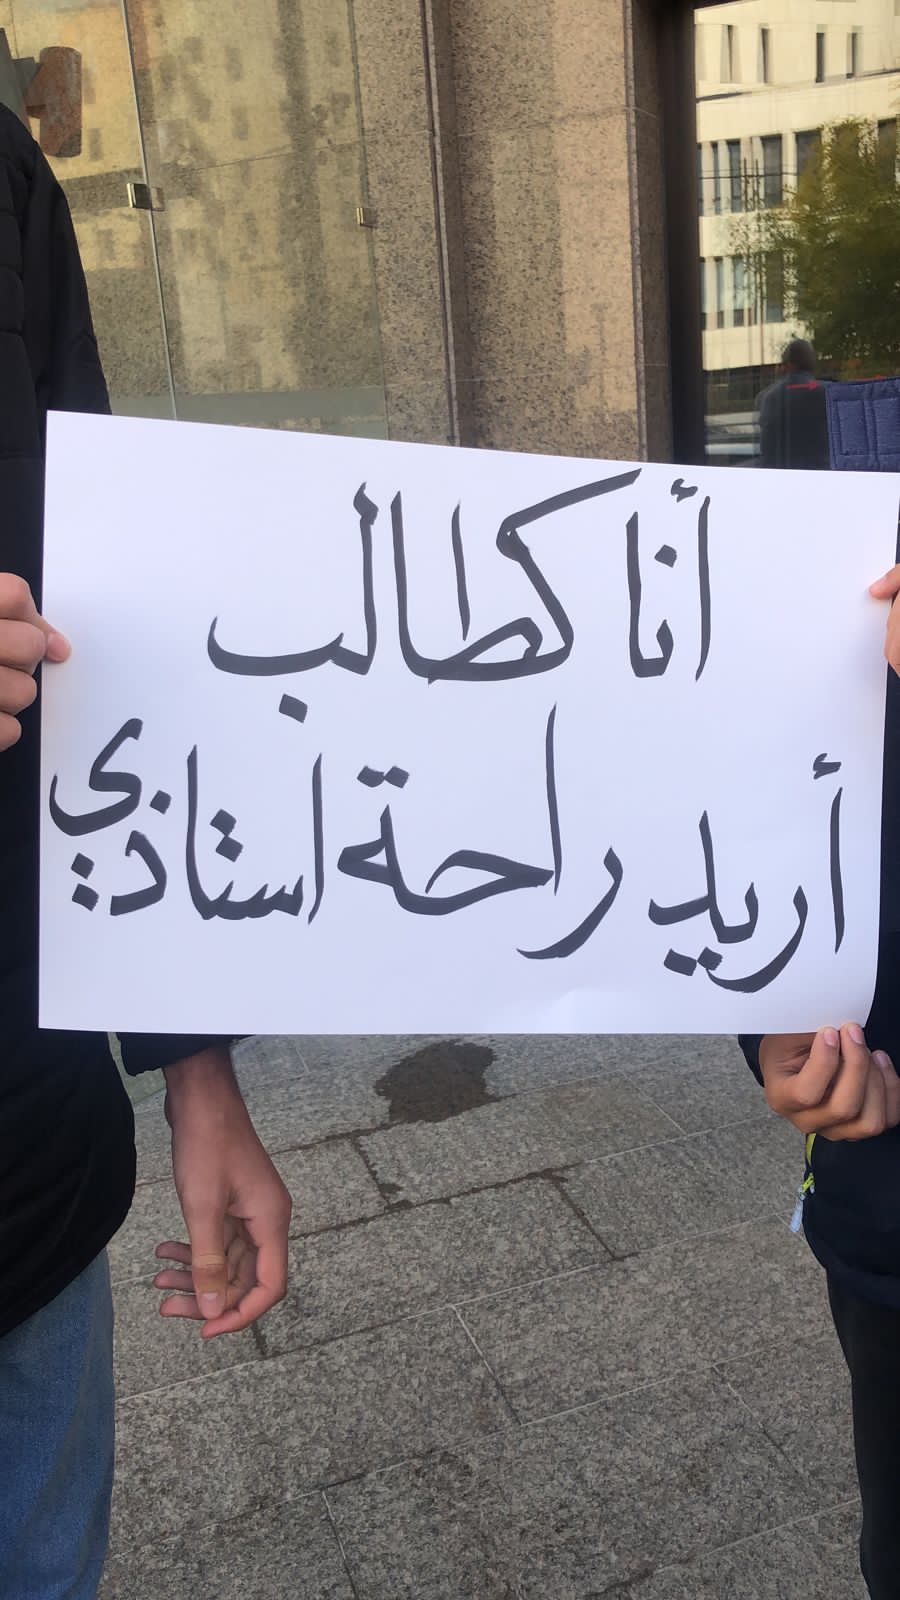 أنا كطالب
أريد راحة استاذي